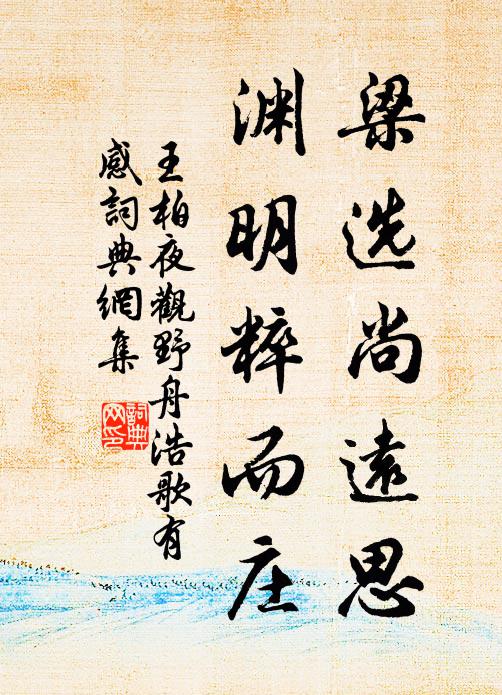 梁选尚遠思
渊明粹而庄
王柏夜觀野舟浩歌有
感詞典網集
詞典网印